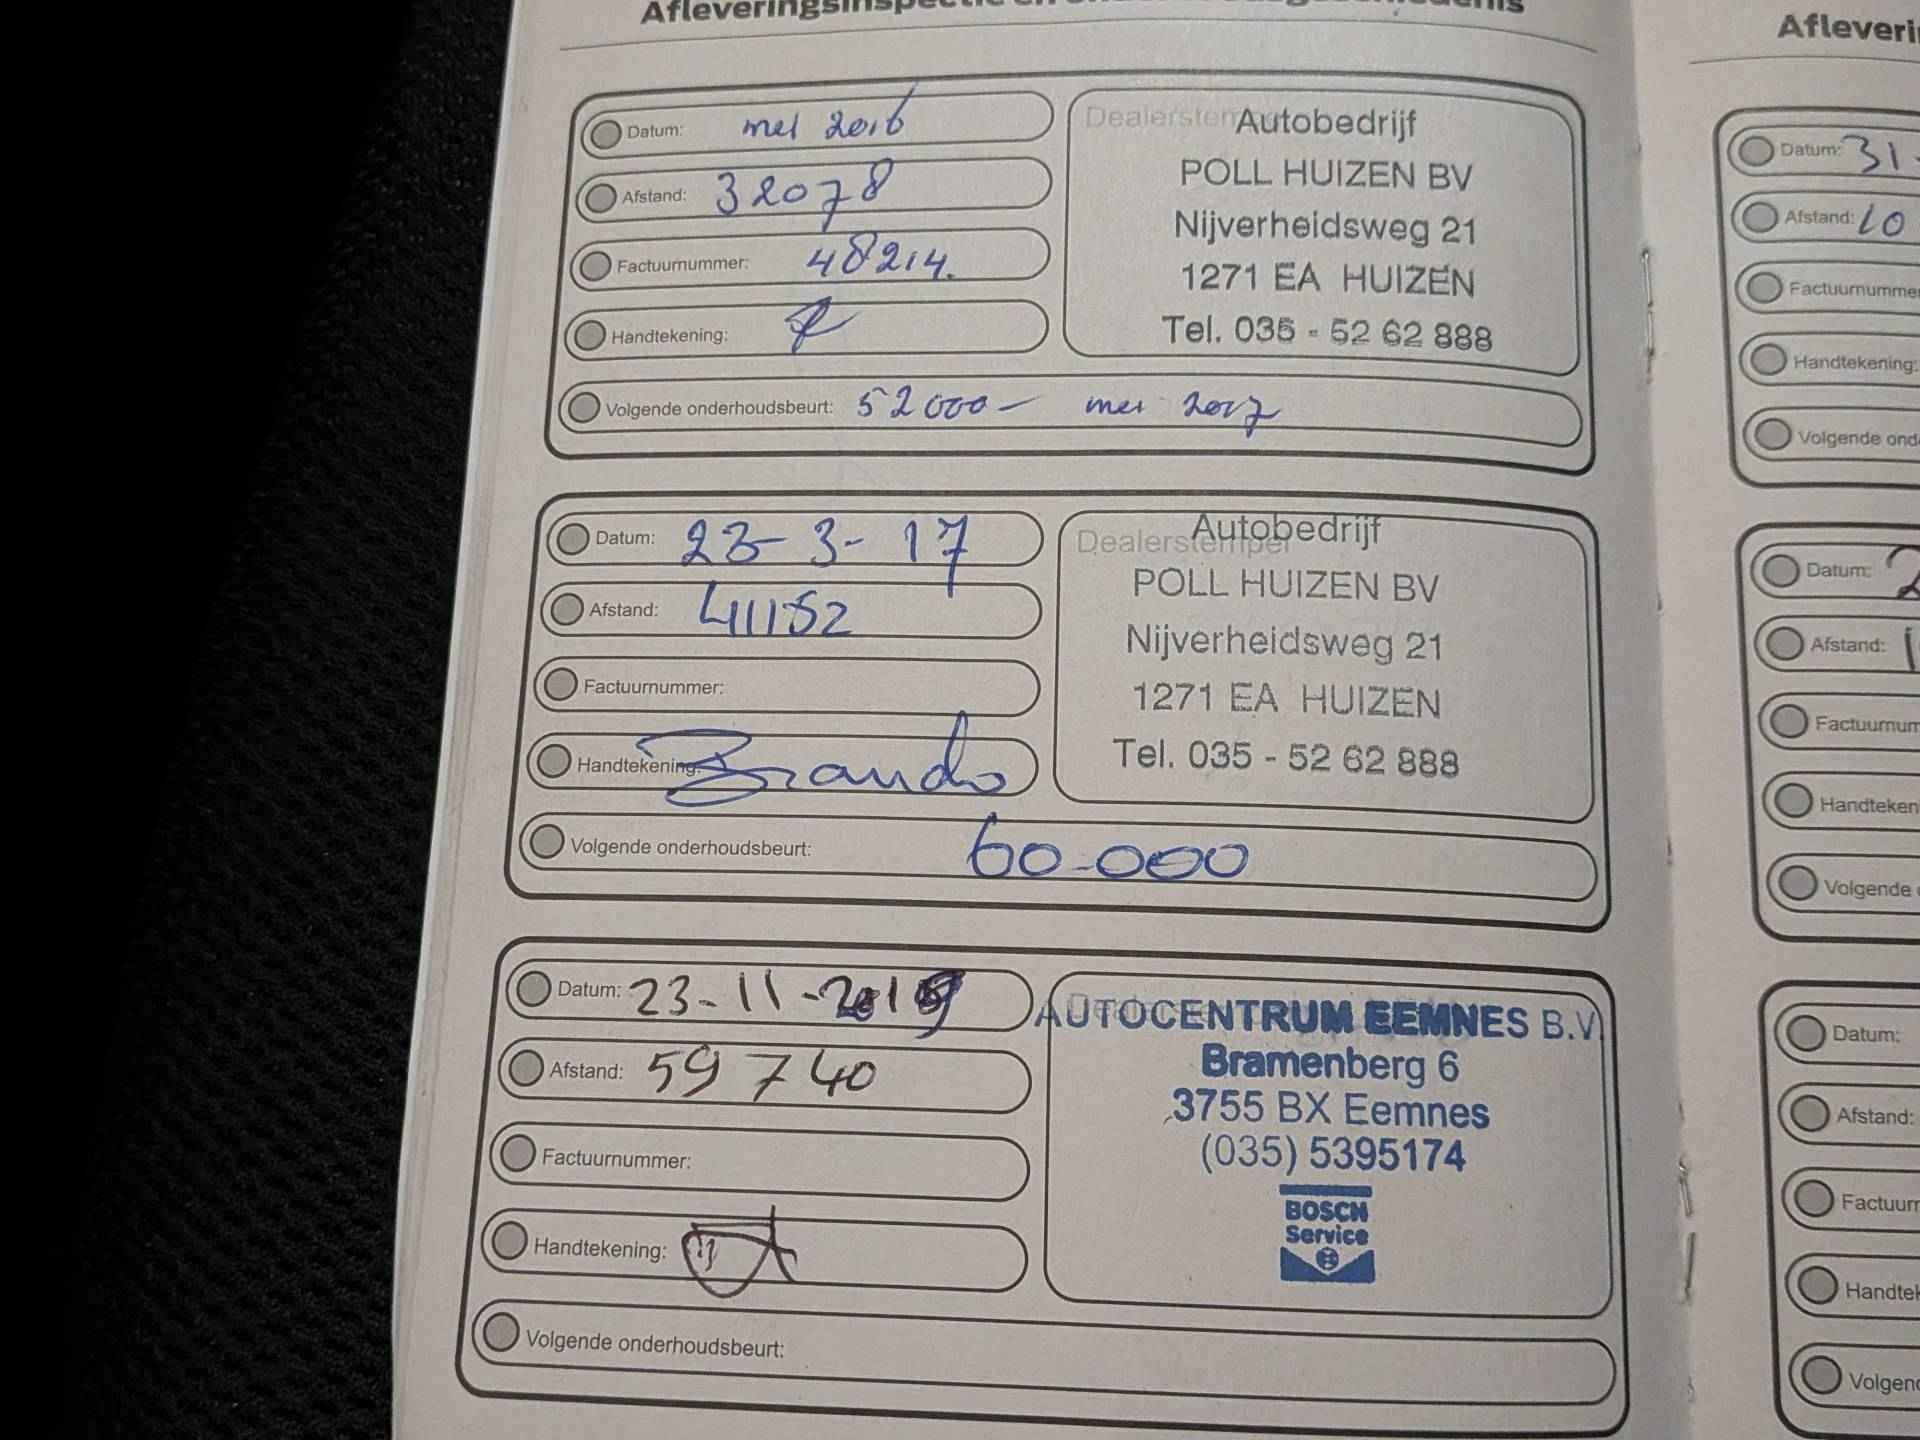 Afleveringsinspectie en
Datum: mei 2016
Afstand: 32078
Factuurnummer: 48214.
Handtekening:
Volgende onderhoudsbeurt: 52000 - mei 2017
Autobedrijf
POLL HUIZEN BV
Nijverheidsweg 21
1271 EA HUIZEN
Tel. 035 - 52 62 888
Datum: 23-3-17
Afstand: 41152
Factuurnummer:
Handtekening:
Volgende onderhoudsbeurt: 60.000
Dealerstempel
Autobedrijf
POLL HUIZEN BV
Nijverheidsweg 21
1271 EA HUIZEN
Tel. 035 - 52 62 888
Datum: 23-11-2019
Afstand: 59740
Factuurnummer:
Handtekening:
Volgende onderhoudsbeurt:
AUTOCENTRUM EEMNES B.V.
Bramenberg 6
3755 BX Eemnes
(035) 5395174
BOSCH
Service
Afleveri
Datum: 31-
Afstand: 10
Factuurnumme
Handtekening:
Volgende ond
Datum: 2
Afstand: 1
Factuurnum
Handteken
Volgende
Datum:
Afstand:
Factuur
Handtek
Volgend